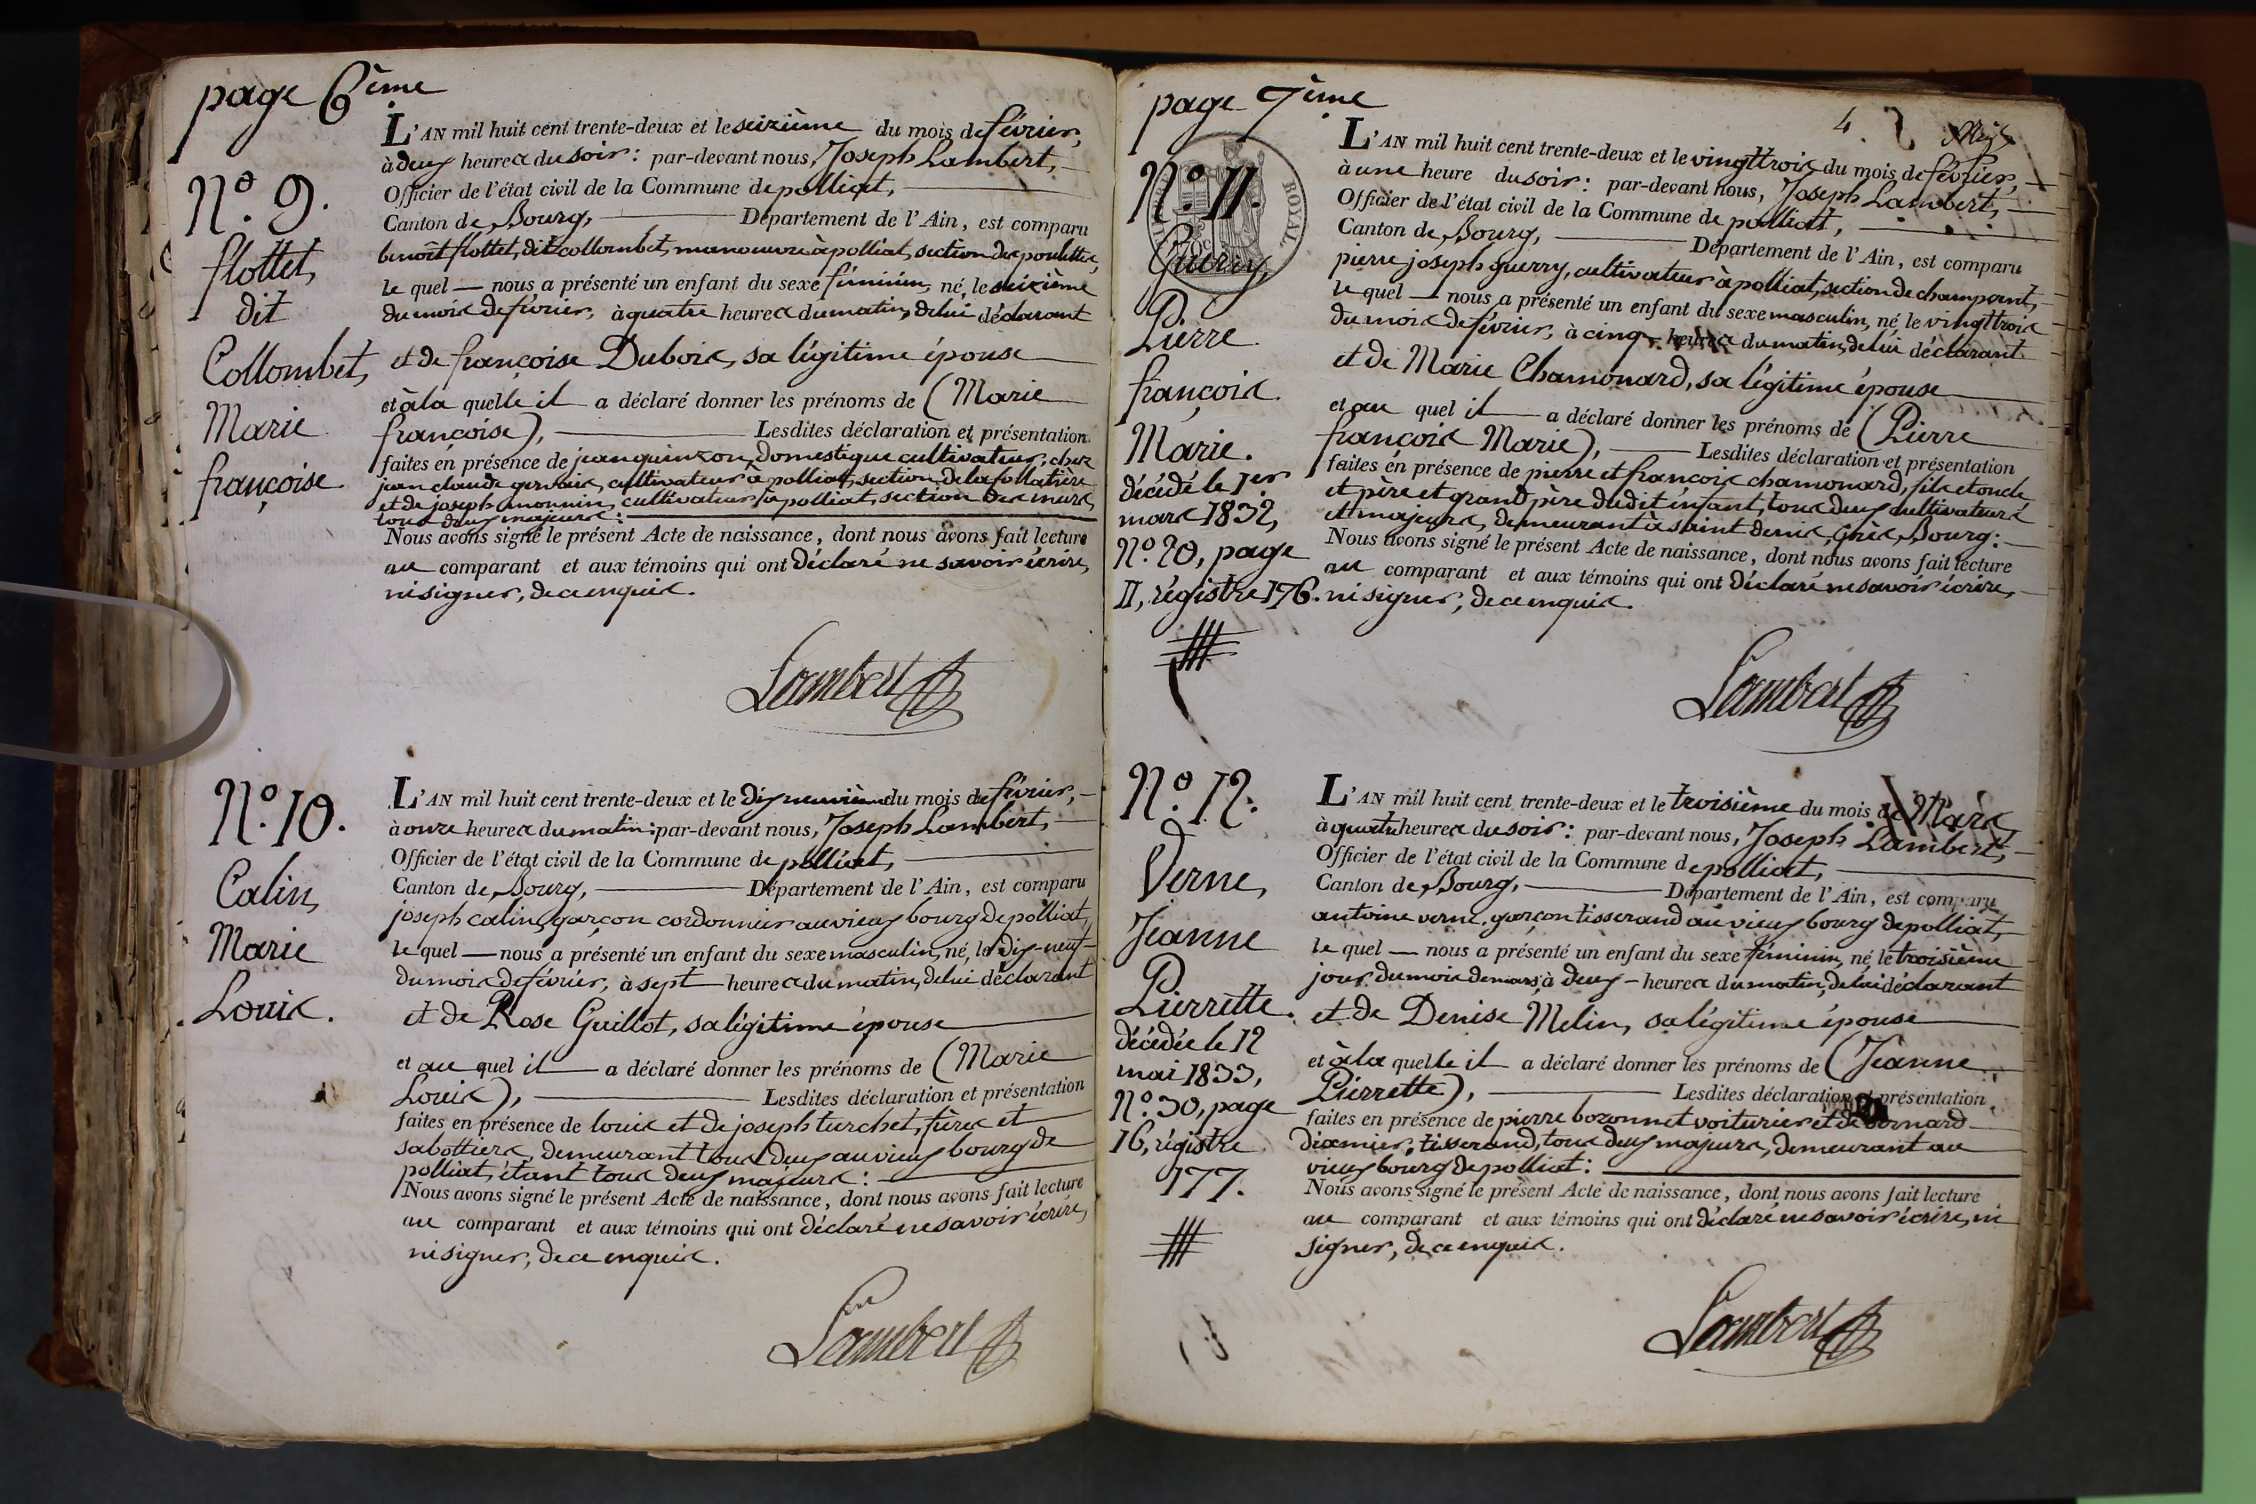 page 6ème
N.º 9.
flottet,
dit
Collombet,
Marie
françoise
L'AN mil huit cent trente-deux et le seizième du mois de février,
à deux heures du soir : par-devant nous, Joseph Lambert,
Officier de l'état civil de la Commune de polliat,
Canton de Bourg, Département de l'Ain, est comparu
benoît flottet, dit collombet, manoeuvre à polliat, section des poulettes,
le quel nous a présenté un enfant du sexe féminin, né, le seizième
du mois de février, à quatre heures du matin, de lui déclarant
et de françoise Dubois, sa légitime épouse
et à la quelle il a déclaré donner les prénoms de (Marie
françoise), Lesdites déclaration et présentation
faites en présence de jean quinson, domestique cultivateur, chez
jean claude gervais, cultivateur à polliat, section de la follatière
et de joseph monnin, cultivateur à polliat, section des mures,
tous deux majeurs :
Nous avons signé le présent Acte de naissance, dont nous avons fait lecture
au comparant et aux témoins qui ont déclaré ne savoir écrire,
ni signer, de ce enquis.
Lambert
N.º 10.
Calin,
Marie
Louis.
L'AN mil huit cent trente-deux et le dix neuvième du mois de février,
à onze heures du matin : par-devant nous, Joseph Lambert,
Officier de l'état civil de la Commune de polliat,
Canton de Bourg, Département de l'Ain, est comparu
joseph calin, garçon cordonnier au vieux bourg de polliat,
le quel nous a présenté un enfant du sexe masculin, né, le dix-neuf
du mois de février, à sept heures du matin, de lui déclarant
et de Rose Guillot, sa légitime épouse
et au quel il a déclaré donner les prénoms de (Marie
Louis), Lesdites déclaration et présentation
faites en présence de louis et de joseph turchet, frères et
sabottiers, demeurant tous deux au vieux bourg de
polliat, étant tous deux majeurs :
Nous avons signé le présent Acte de naissance, dont nous avons fait lecture
au comparant et aux témoins qui ont déclaré ne savoir écrire,
ni signer, de ce enquis.
Lambert
page 7ème
4.
N.º 11.
ROYAL
Guerry,
Pierre
françois
Marie.
décédé le 1er
mars 1832,
N.º 20, page
11, régistre 176.
L'AN mil huit cent trente-deux et le vingt trois du mois de février,
à une heure du soir : par-devant nous, Joseph Lambert,
Officier de l'état civil de la Commune de polliat,
Canton de Bourg, Département de l'Ain, est comparu
pierre joseph guerry, cultivateur à polliat, section de champvent,
le quel nous a présenté un enfant du sexe masculin, né, le vingt trois
du mois de février, à cinq heures du matin, de lui déclarant
et de Marie Chamonard, sa légitime épouse
et au quel il a déclaré donner les prénoms de (Pierre
françois Marie), Lesdites déclaration et présentation
faites en présence de pierre et françois chamonard, fils et oncle
et père et grand père dudit enfant, tous deux cultivateurs
et majeurs, demeurant à saint denis, près Bourg :
Nous avons signé le présent Acte de naissance, dont nous avons fait lecture
au comparant et aux témoins qui ont déclaré ne savoir écrire,
ni signer, de ce enquis.
Lambert
N.º 12.
Verne,
Jeanne
Pierrette.
décédée le 12
mai 1833,
N.º 30, page
16, régistre
177.
L'AN mil huit cent trente-deux et le troisième du mois de Mars,
à quatre heures du soir : par-devant nous, Joseph Lambert,
Officier de l'état civil de la Commune de polliat,
Canton de Bourg, Département de l'Ain, est comparu
antoine verne, garçon tisserand au vieux bourg de polliat,
le quel nous a présenté un enfant du sexe féminin, né, le troisième
jour du mois de mars, à deux heures du matin, de lui déclarant
et de Denise Melin, sa légitime épouse
et à la quelle il a déclaré donner les prénoms de (Jeanne
Pierrette), Lesdites déclaration et présentation
faites en présence de pierre bozonnet voiturier et de bernard
diannier, tisserand, tous deux majeurs, demeurant au
vieux bourg de polliat :
Nous avons signé le présent Acte de naissance, dont nous avons fait lecture
au comparant et aux témoins qui ont déclaré ne savoir écrire, ni
signer, de ce enquis.
Lambert